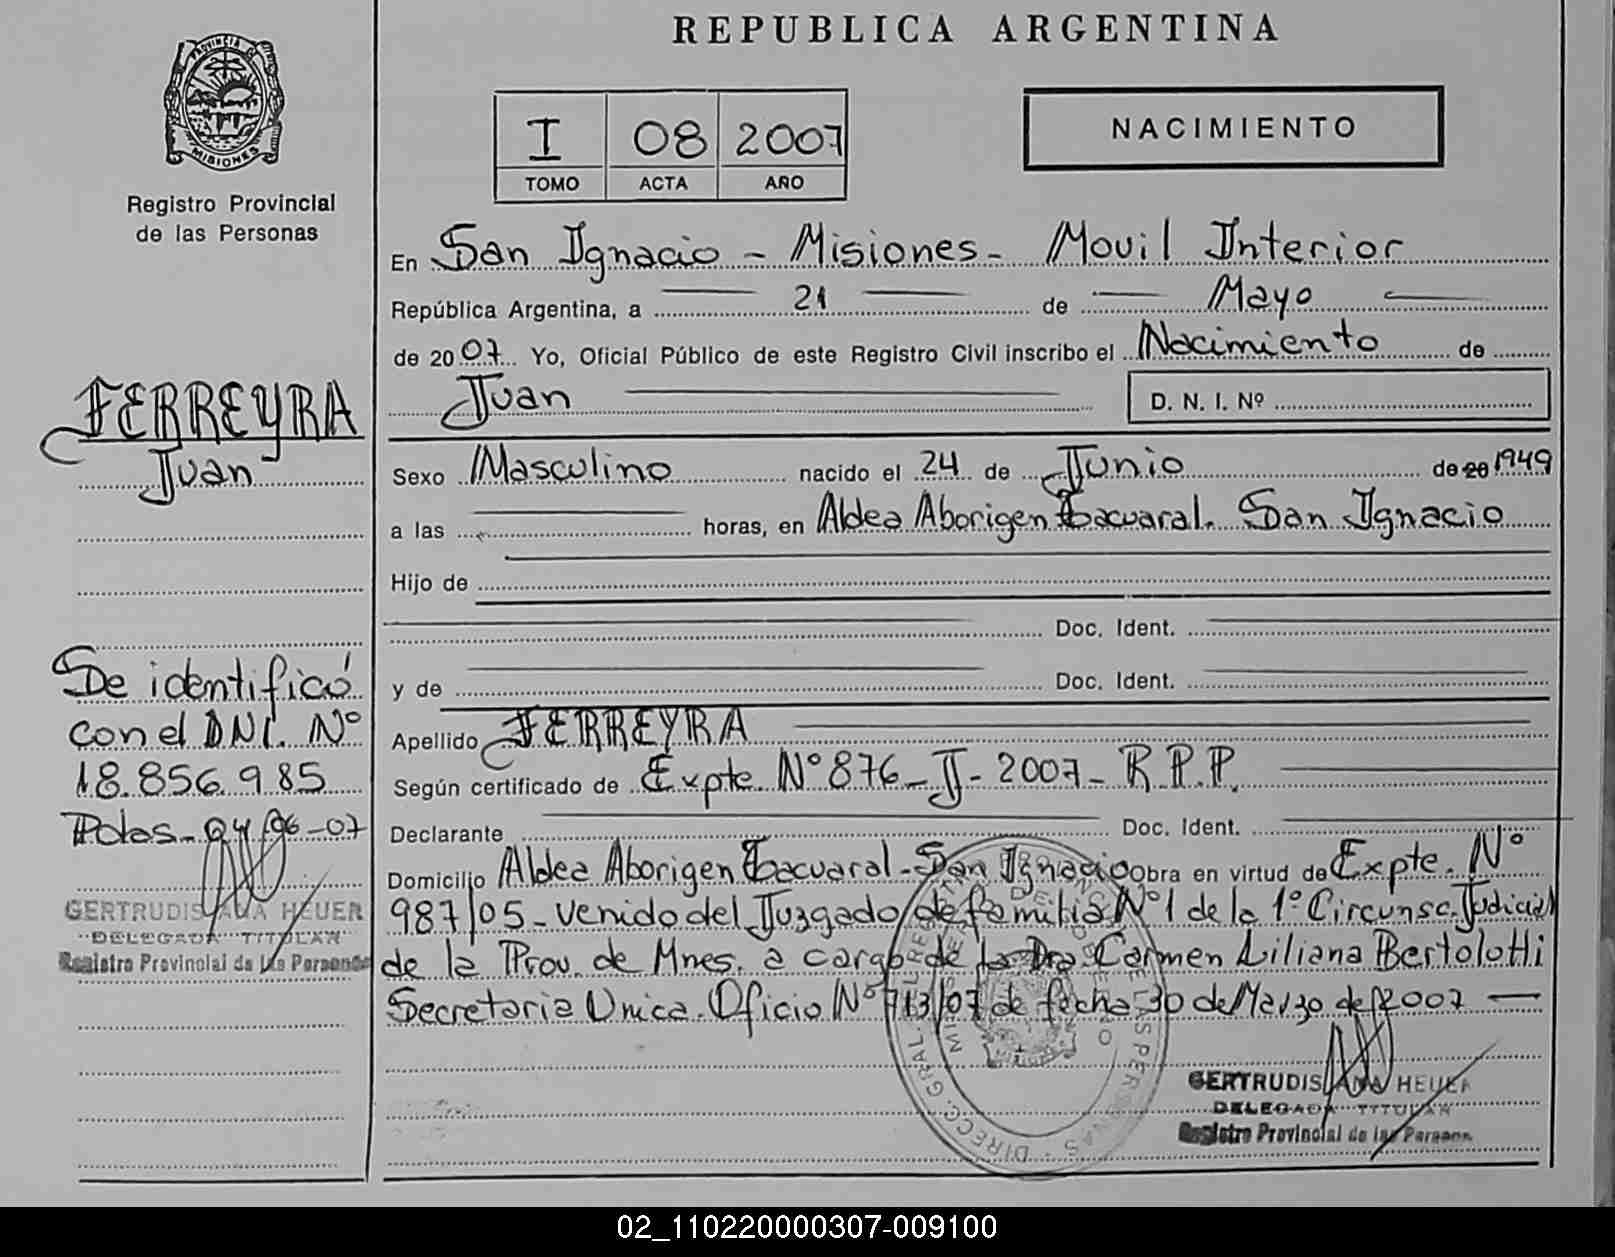 REPUBLICA ARGENTINA
PROVINCIA DE
MISIONES
Registro Provincial
de las Personas
I 08 2007
TOMO ACTA AÑO
NACIMIENTO
En San Ignacio - Misiones - Movil Interior
República Argentina, a 21 de Mayo
de 2007 Yo, Oficial Público de este Registro Civil inscribo el Nacimiento de
Juan D. N. I. Nº
Sexo Masculino nacido el 24 de Junio de 20 1949
a las horas, en Aldea Aborigen Tacuaral. San Ignacio
Hijo de
Doc. Ident.
y de Doc. Ident.
Apellido FERREYRA
Según certificado de Expte. Nº 876-J-2007-R.P.P.
Declarante Doc. Ident.
Domicilio Aldea Aborigen Tacuaral - San Ignacio Obra en virtud de Expte. Nº
987/05 - venido del Juzgado de familia Nº 1 de la 1º Circunsc. Judicial
de la Prov. de Mnes. a cargo de la Dra. Carmen Liliana Bertolotti
Secretaria Unica. Oficio Nº 713/07 de fecha 30 de Marzo de 2007
GERTRUDIS ANA HEUER
DELEGADA TITULAR
Registro Provincial de las Persona
FERREYRA
Juan
Se identificó
con el DNI. Nº
18.856.985
Pdas - 04/06-07
GERTRUDIS ANA HEUER
DELEGADA TITULAR
Registro Provincial de las Personas
02_110220000307-009100